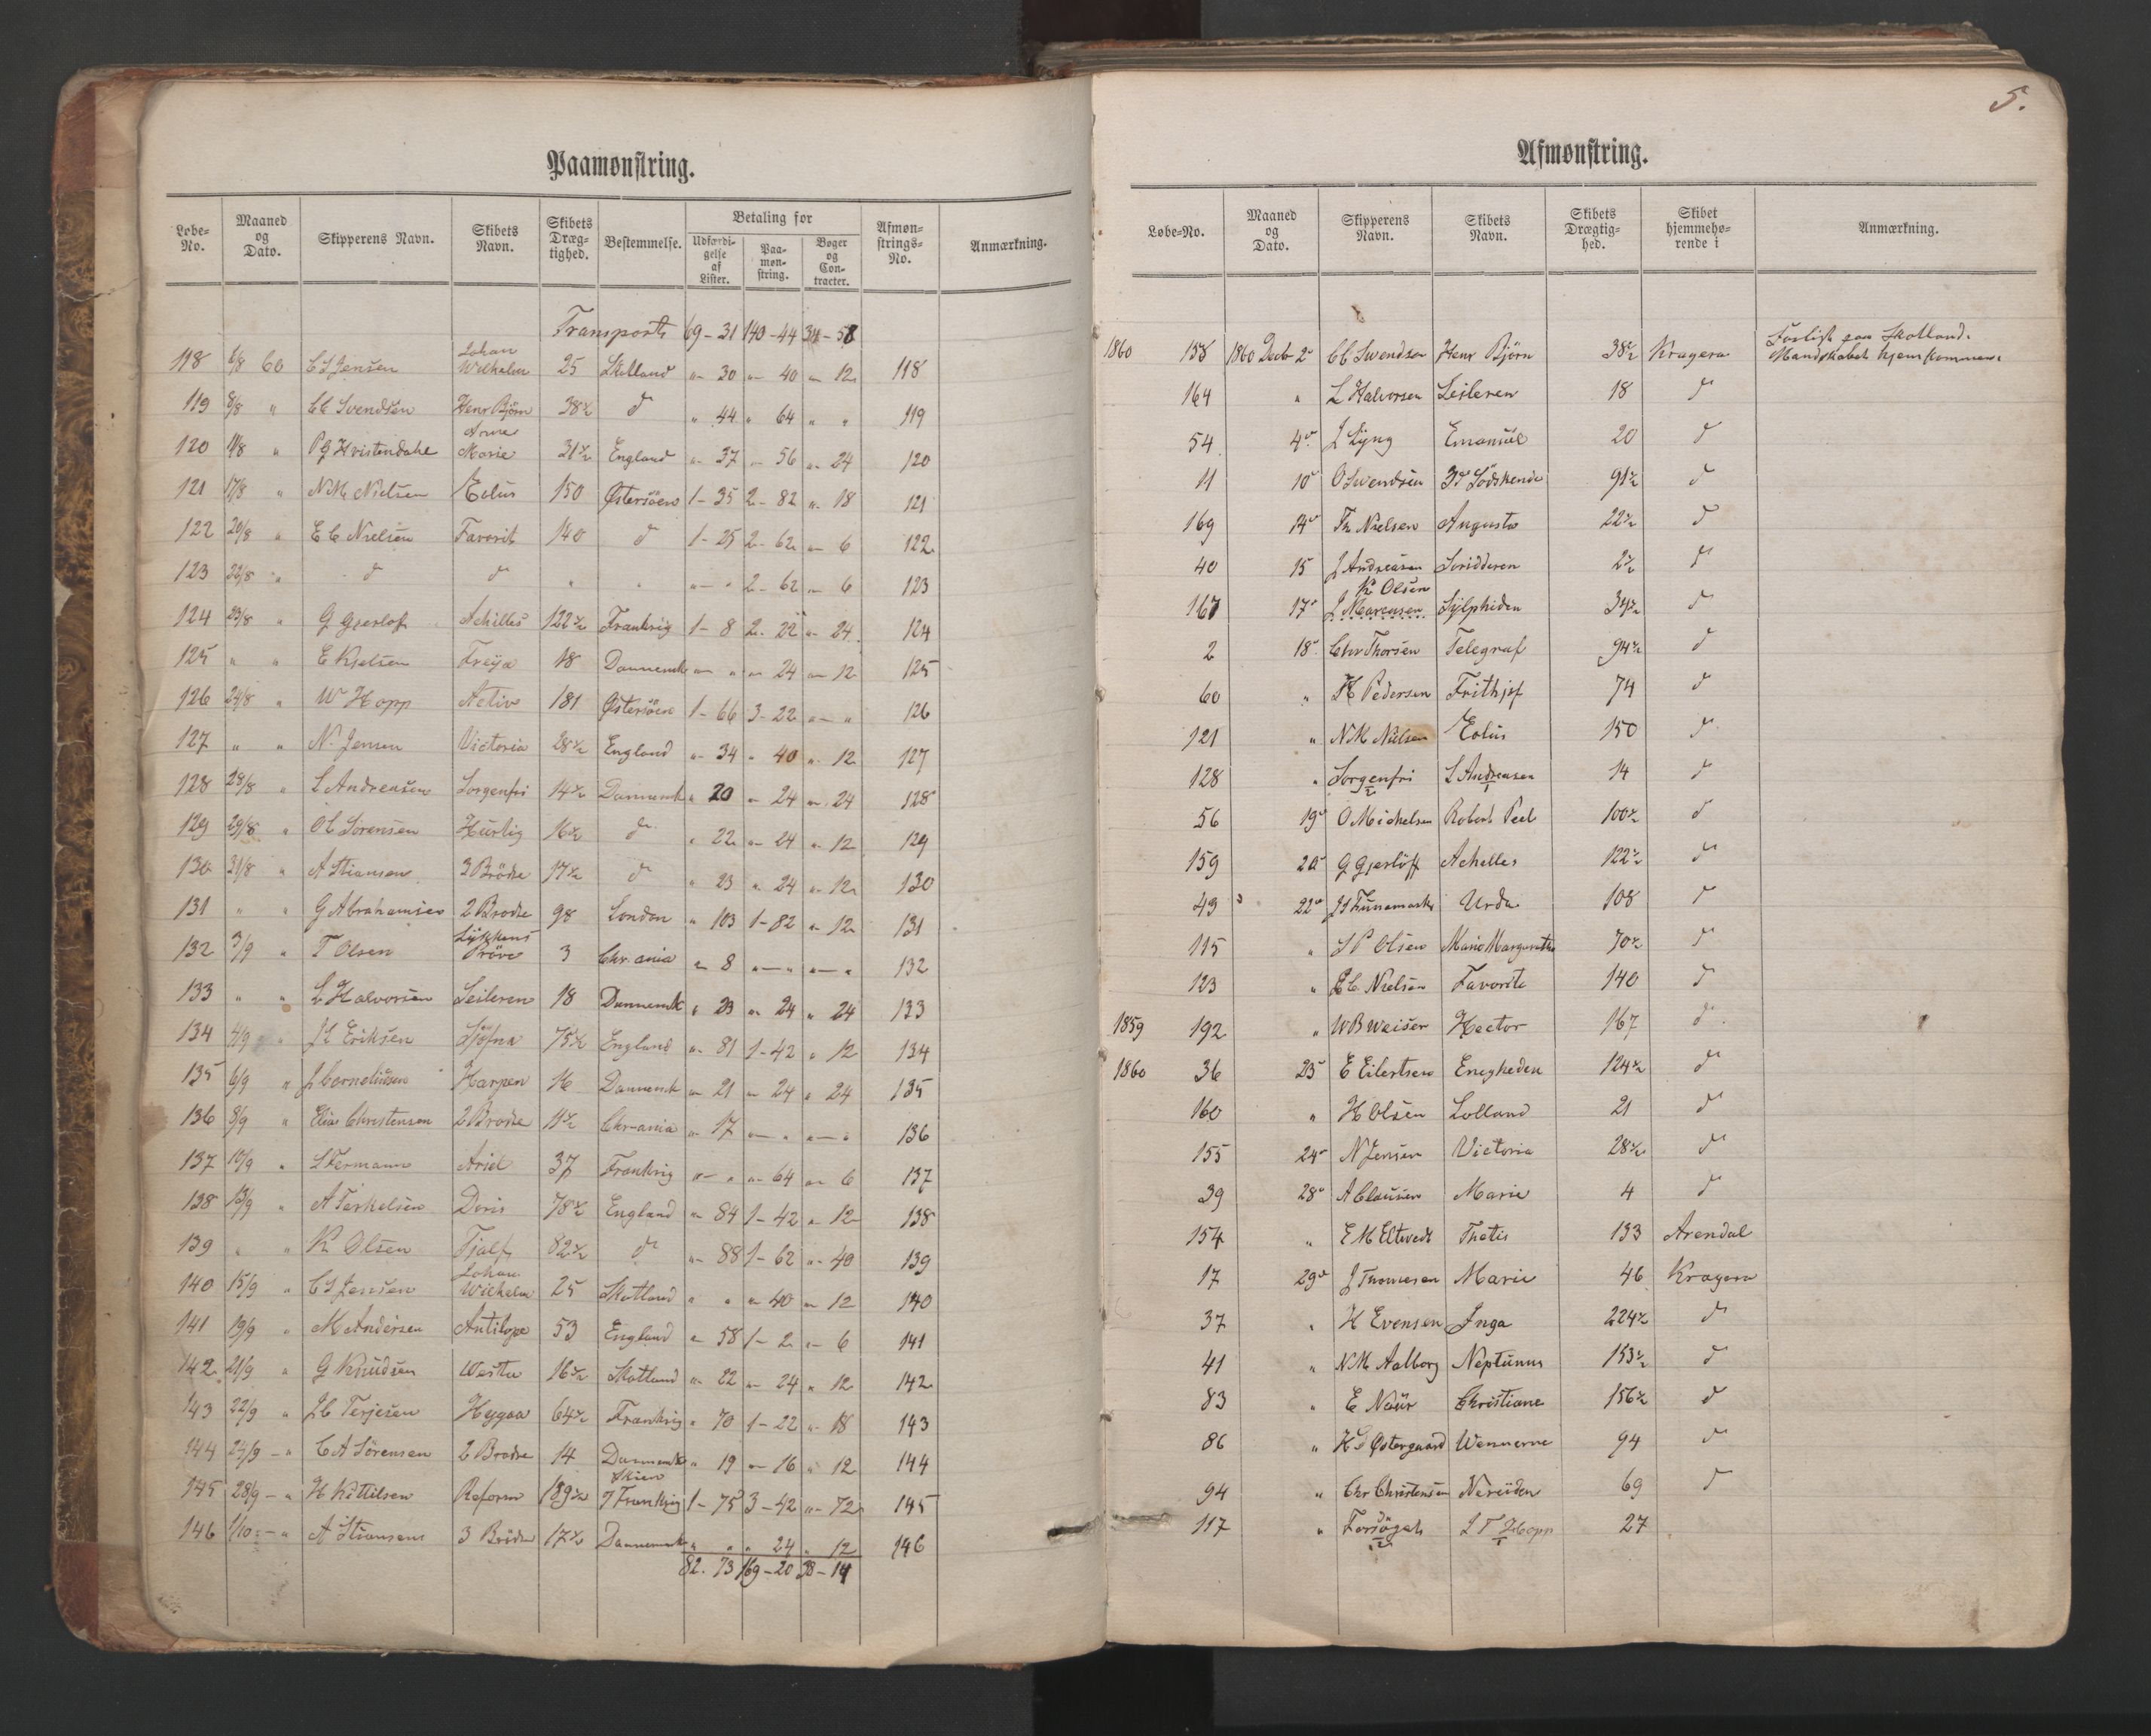 Paamønstring.
Løbe-No. | Maaned og Dato. | Skipperens Navn. | Skibets Navn. | Skibets Drægtighed. | Bestemmelse. | Betaling for | Udfærdigelse af Lister. | Paamønstring. | Bøger og Contracter. | Afmønstrings-No. | Anmærkning.
Transport 69-31 140-44 34-58
118 6/8 60 C S Jensen Johan Wilhelm 25 Skotland " 30 " 40 " 12 118
119 8/8 " C C Svendsen Henr Björn 38½ do " 44 " 64 " " 119
120 11/8 " P G Kristendahl Anne Marie 31½ England " 37 " 56 " 24 120
121 17/8 " N M Nielsen Eolus 150 Østersöen 1-35 2-82 " 18 121
122 20/8 " E C Nielsen Favorit 140 do 1-25 2-62 " 6 122
123 22/8 " do do " " " " 2-62 " 6 123
124 23/8 " G Gjerlof Achilles 122½ Frankrig 1-8 2-22 " 24 124
125 " " E Kjelsen Freÿa 18 Dannemk " " " 24 " 12 125
126 24/8 " W Hopp Activ 181 Østersöen 1-66 3-22 " " 126
127 " " N Jensen Victoria 28½ England " 34 " 40 " 12 127
128 28/8 " L Andreasen Sorgenfri 14½ Dannemk " 20 " 24 " 24 128
129 29/8 " O C Sörensen Hurtig 16½ do " 22 " 24 " 12 129
130 31/8 " A Stiansen 3 Brödre 17½ do " 23 " 24 " 12 130
131 " " G Abrahamsen 2 Brodre 98 London " 103 1-82 " 12 131
132 3/9 " T Olsen Lykkens Pröve 3 Chr.ania " 8 " " " " 132
133 " " L Halvorsen Seileren 18 Dannemk " 23 " 24 " 24 133
134 4/9 " J C Eriksen Sjöfna 75½ England " 81 1-42 " 12 134
135 6/9 " J Corneliussen Harpen 16 Dannemk " 21 " 24 " 24 135
136 8/9 " Elias Christensen 2 Brodre 11½ Chr-ania " 17 " " " " 136
137 10/9 " S Fermann Ariel 37 Frankrig " " " 64 " 6 137
138 13/9 " A Terkelsen Doris 78½ England " 84 1-42 " 12 138
139 " " K Olsen Tjalf 82½ do " 88 1-62 " 40 139
140 15/9 " C S Jensen Johan Wilhelm 25 Skotland " " " 40 " 12 140
141 19/9 " M Andersen Antilope 53 England " 58 1-2 " 6 141
142 21/9 " G Knudsen Westa 16½ Skotland " 22 " 24 " 12 142
143 22/9 " J C Terjesen Hygæa 64½ Frankrig " 70 1-22 " 18 143
144 24/9 " C A Sörensen 2 Brodre 14 Dannemk " 19 " 16 " 12 144
145 28/9 " H Kittilsen Reform 189½ Skien Frankrig 1-75 3-42 " 72 145
146 1/10 " A Stiansen 3 Brödre 17½ Dannemk " " " 24 " 12 146
82-73 169-20 38-14
5.
Afmønstring.
Løbe-No. | Maaned og Dato. | Skipperens Navn. | Skibets Navn. | Skibets Drægtighed. | Skibet hjemmehørende i | Anmærkning.
1860 158 1860 Decb 2 C C Svendsen Henr Björn 38½ Kragerø Forlist paa Skotland. Mandskabet hjemkommen.
164 " L Halvorsen Seileren 18 do
54 4 J Lÿng Emanuel 20 do
11 10 O Swendsen 3de Södskende 91½ do
169 14 Th Nielsen Augusta 22½ do
40 15 J Andreasen Soridderen 2½ do
167 17 K Olsen J Marcusen Sylphiden 34½ do
2 18 Chr Thorsen Telegraf 94½ do
60 " H Pedersen Frithjof 74 do
121 " N M Nielsen Eolus 150 do
128 " Sorgenfri L Andreasen 14 do
56 19 O Michelsen Robert Peel 100½ do
159 20 G Gjerlöff Achelles 122½ do
49 22 Urda 108 do
115 " S P Olsen Marie Margrethe 70½ do
123 " E C Nielsen Favorite 140 do
1859 192 " W B Weiser Hector 167 do
1860 36 23 E Eilertsen Enigheden 124½ do
160 " H Olsen Lolland 21 do
155 24 N Jensen Victoria 28½ do
39 28 A Clausen Marie 4 do
154 " E M Eltvedt Thetis 133 Arendal
17 29 J Thomesen Marie 46 Kragerø
37 " H Evensen Inga 224½ do
41 " N M Aalborg Neptunus 153½ do
83 " E Naür Christiane 156½ do
86 " H Østergaard Wennerne 94 do
94 " Chr Christensen Nereiden 69 do
117 " Forsöget L T Hopp 27